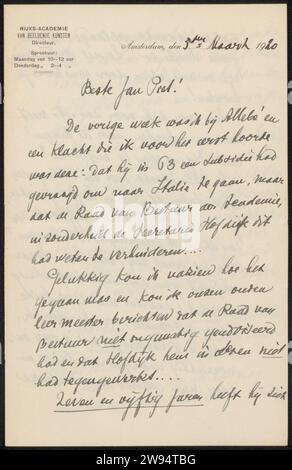 RIJKS-ACADEMIE
VAN BEELDENDE KUNSTEN
Directeur.
Spreekuur:
Maandag van 10–12 uur
Donderdag „ 2–4 „
Amsterdam, den 5den Maart 1920
Beste Jan Piet!
De vorige week was ik bij Allebé en
een klacht die ik voor het eerst hoorde
was deze: dat hij in 63 een subsidie had
gevraagd om naar Italie te gaan, maar
dat de Raad van Bestuur der Academie,
in zonderheid de Secretaris Hofdijk dit
had weten te verhinderen....
Gelukkig kon ik nazien hoe het
gegaan was en kon ik onzen ouden
leermeester berichten dat de Raad van
Bestuur niet ongunstig geadviseerd
had en dat Hofdijk hem in dezen niet
had tegengewerkt....
Zeven en vijftig jaren heeft hij zich
alamy
Image ID: 2W94TBG
www.alamy.com